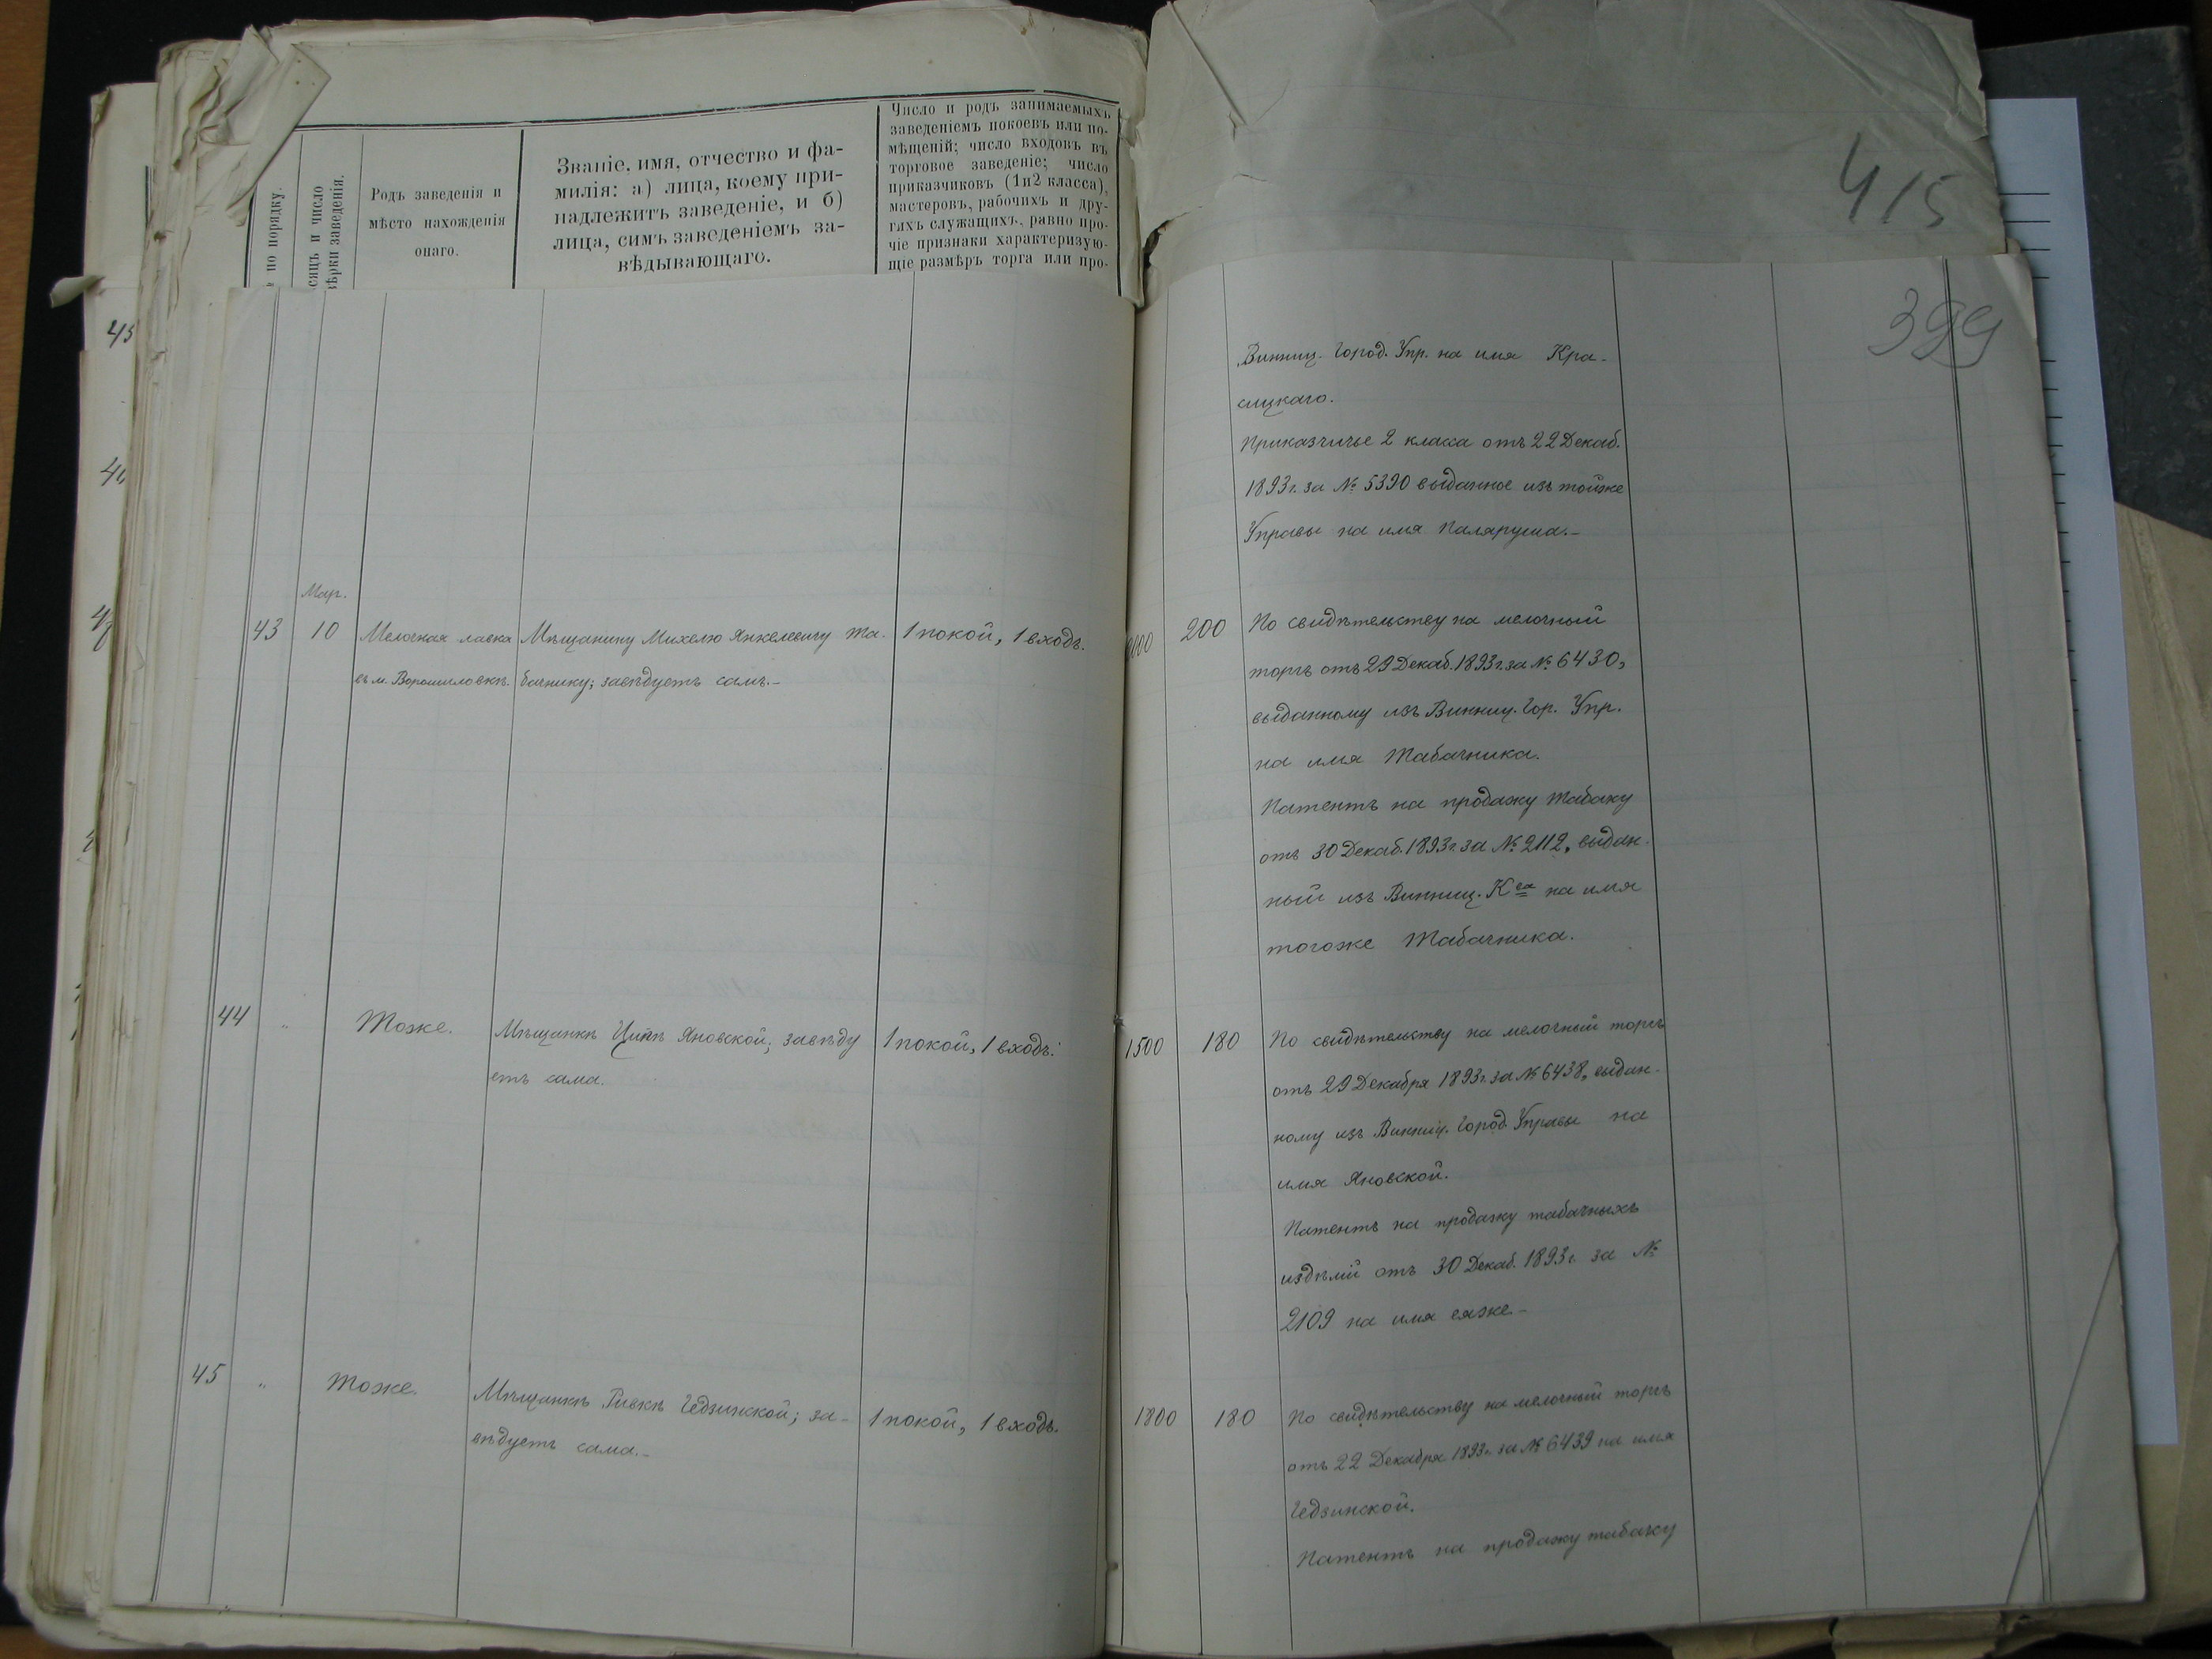 по порядку.
сяцъ и число
ѣрки заведенія.
Родъ заведенія и
мѣсто нахожденія
онаго.
Званіе, имя, отчество и фа-
милія: а) лица, коему при-
надлежитъ заведеніе, и б)
лица, симъ заведеніемъ за-
вѣдывающаго.
Число и родъ занимаемыхъ
заведеніемъ покоевъ или по-
мѣщеній; число входовъ въ
торговое заведеніе; число
приказчиковъ (1и2 класса),
мастеровъ, рабочихъ и дру-
гихъ служащихъ, равно про-
чіе признаки характеризую-
щіе размѣръ торга или про-
415
399
Винниц. Город. Упр. на имя Кра-
сицкаго.
Приказчичье 2 класса отъ 22 Декаб.
1893 г. за № 5390 выданное изъ тойже
Управы на имя Паляруша.-
Мар.
43 10 Мелочная лавка
въ м. Ворошиловкѣ.
Мѣщанину Михелю Янкелевичу Та-
бачнику; завѣдуетъ самъ.-
1 покой, 1 входъ.
200
По свидѣтельству на мелочный
торгъ отъ 29 Декаб. 1893 г. за № 6430,
выданному изъ Винниц. Гор. Упр.
на имя Табачника.
Патентъ на продажу табаку
отъ 30 Декаб. 1893 г. за № 2112, выдан-
ный изъ Винниц. К-ва на имя
тогоже Табачника.
44 " Тоже.
Мѣщанкѣ Ципѣ Яновской; завѣду
етъ сама.
1 покой, 1 входъ.
1500 180
По свидѣтельству на мелочный торгъ
отъ 29 Декабря 1893 г. за № 6438, выдан-
ному изъ Винниц. Город. Управы на
имя Яновской.
Патентъ на продажу табачныхъ
издѣлій отъ 30 Декаб. 1893 г. за №
2109 на имя еяже.-
45 " Тоже.
Мѣщанкѣ Ривкѣ Гедзинской; за-
вѣдуетъ сама.-
1 покой, 1 входъ.
1800 180
По свидѣтельству на мелочный торгъ
отъ 22 Декабря 1893 г. за № 6439 на имя
Гедзинской.
Патентъ на продажу табаку